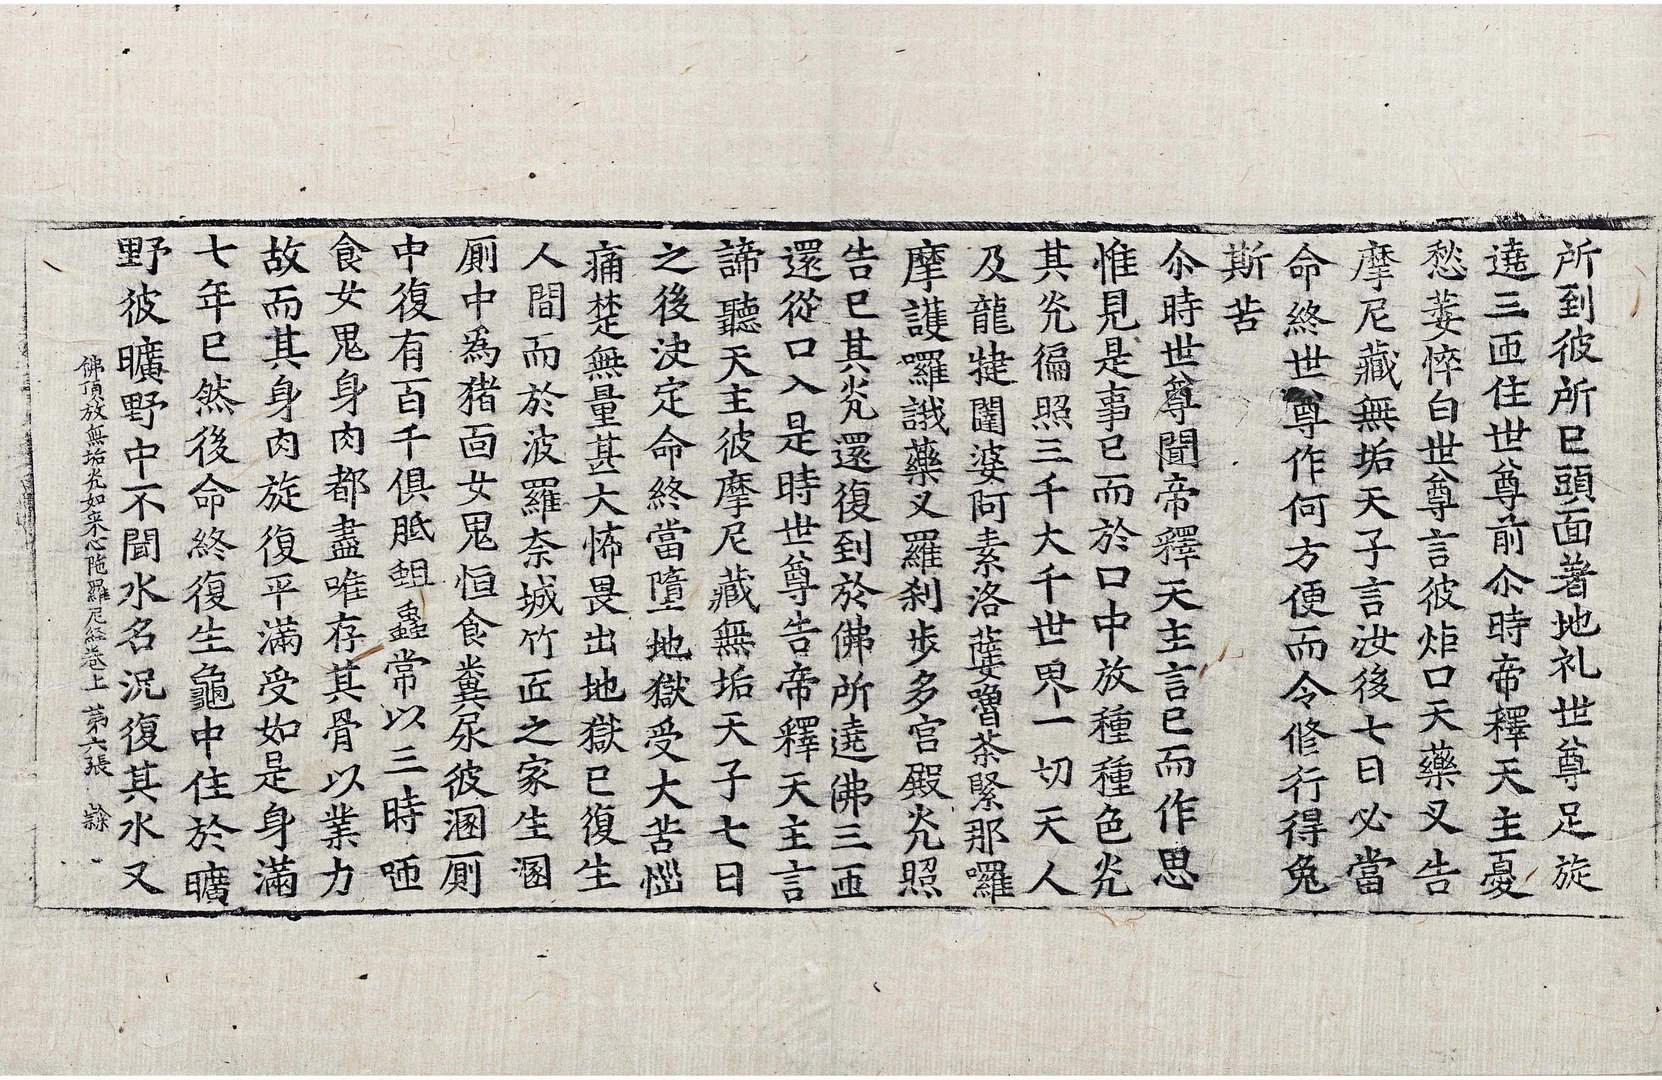 所到彼所已頭面著地礼世尊足旋
遶三匝住世尊前尒時帝釋天主憂
愁萎悴白世尊言彼炬口天藥叉告
摩尼藏無垢天子言汝後七日必當
命終世尊作何方便而令修行得免
斯苦
尒時世尊聞帝釋天主言已而作思
惟見是事已而於口中放種種色光
其光徧照三千大千世界一切天人
及龍揵闥婆阿素洛蘖嚕荼緊那囉
摩護囉誐藥叉羅剎步多宮殿光照
告已其光還復到於佛所遶佛三匝
還從口入是時世尊告帝釋天主言
諦聽天主彼摩尼藏無垢天子七日
之後決定命終當墮地獄受大苦惱
痛楚無量甚大怖畏出地獄已復生
人間而於波羅奈城竹匠之家生溷
厠中爲猪面女鬼恒食糞尿彼溷厠
中復有百千俱胝蛆蟲常以三時咂
食女鬼身肉都盡唯存其骨以業力
故而其身肉旋復平滿受如是身滿
七年已然後命終復生龜中住於曠
野彼曠野中不聞水名況復其水又
佛頂放無垢光如来心陁羅尼経卷上 第六張 隸